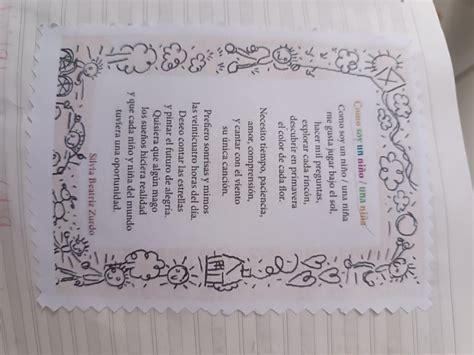 Como soy un niño / una niña
Como soy un niño / una niña
me gusta jugar bajo el sol,
hacer mil preguntas,
explorar cada rincón,
descubrir en primavera
el color de cada flor.
Necesito tiempo, paciencia,
amor, comprensión,
y cantar con el viento
su única canción,
Prefiero sonrisas y mimos
las veinticuatro horas del día.
Deseo contar las estrellas
y pintar el futuro de alegría.
Quisiera que algún mago
los sueños hiciera realidad
y que cada niño y niña del mundo
tuviera una oportunidad.
Silvia Beatriz Zurdo